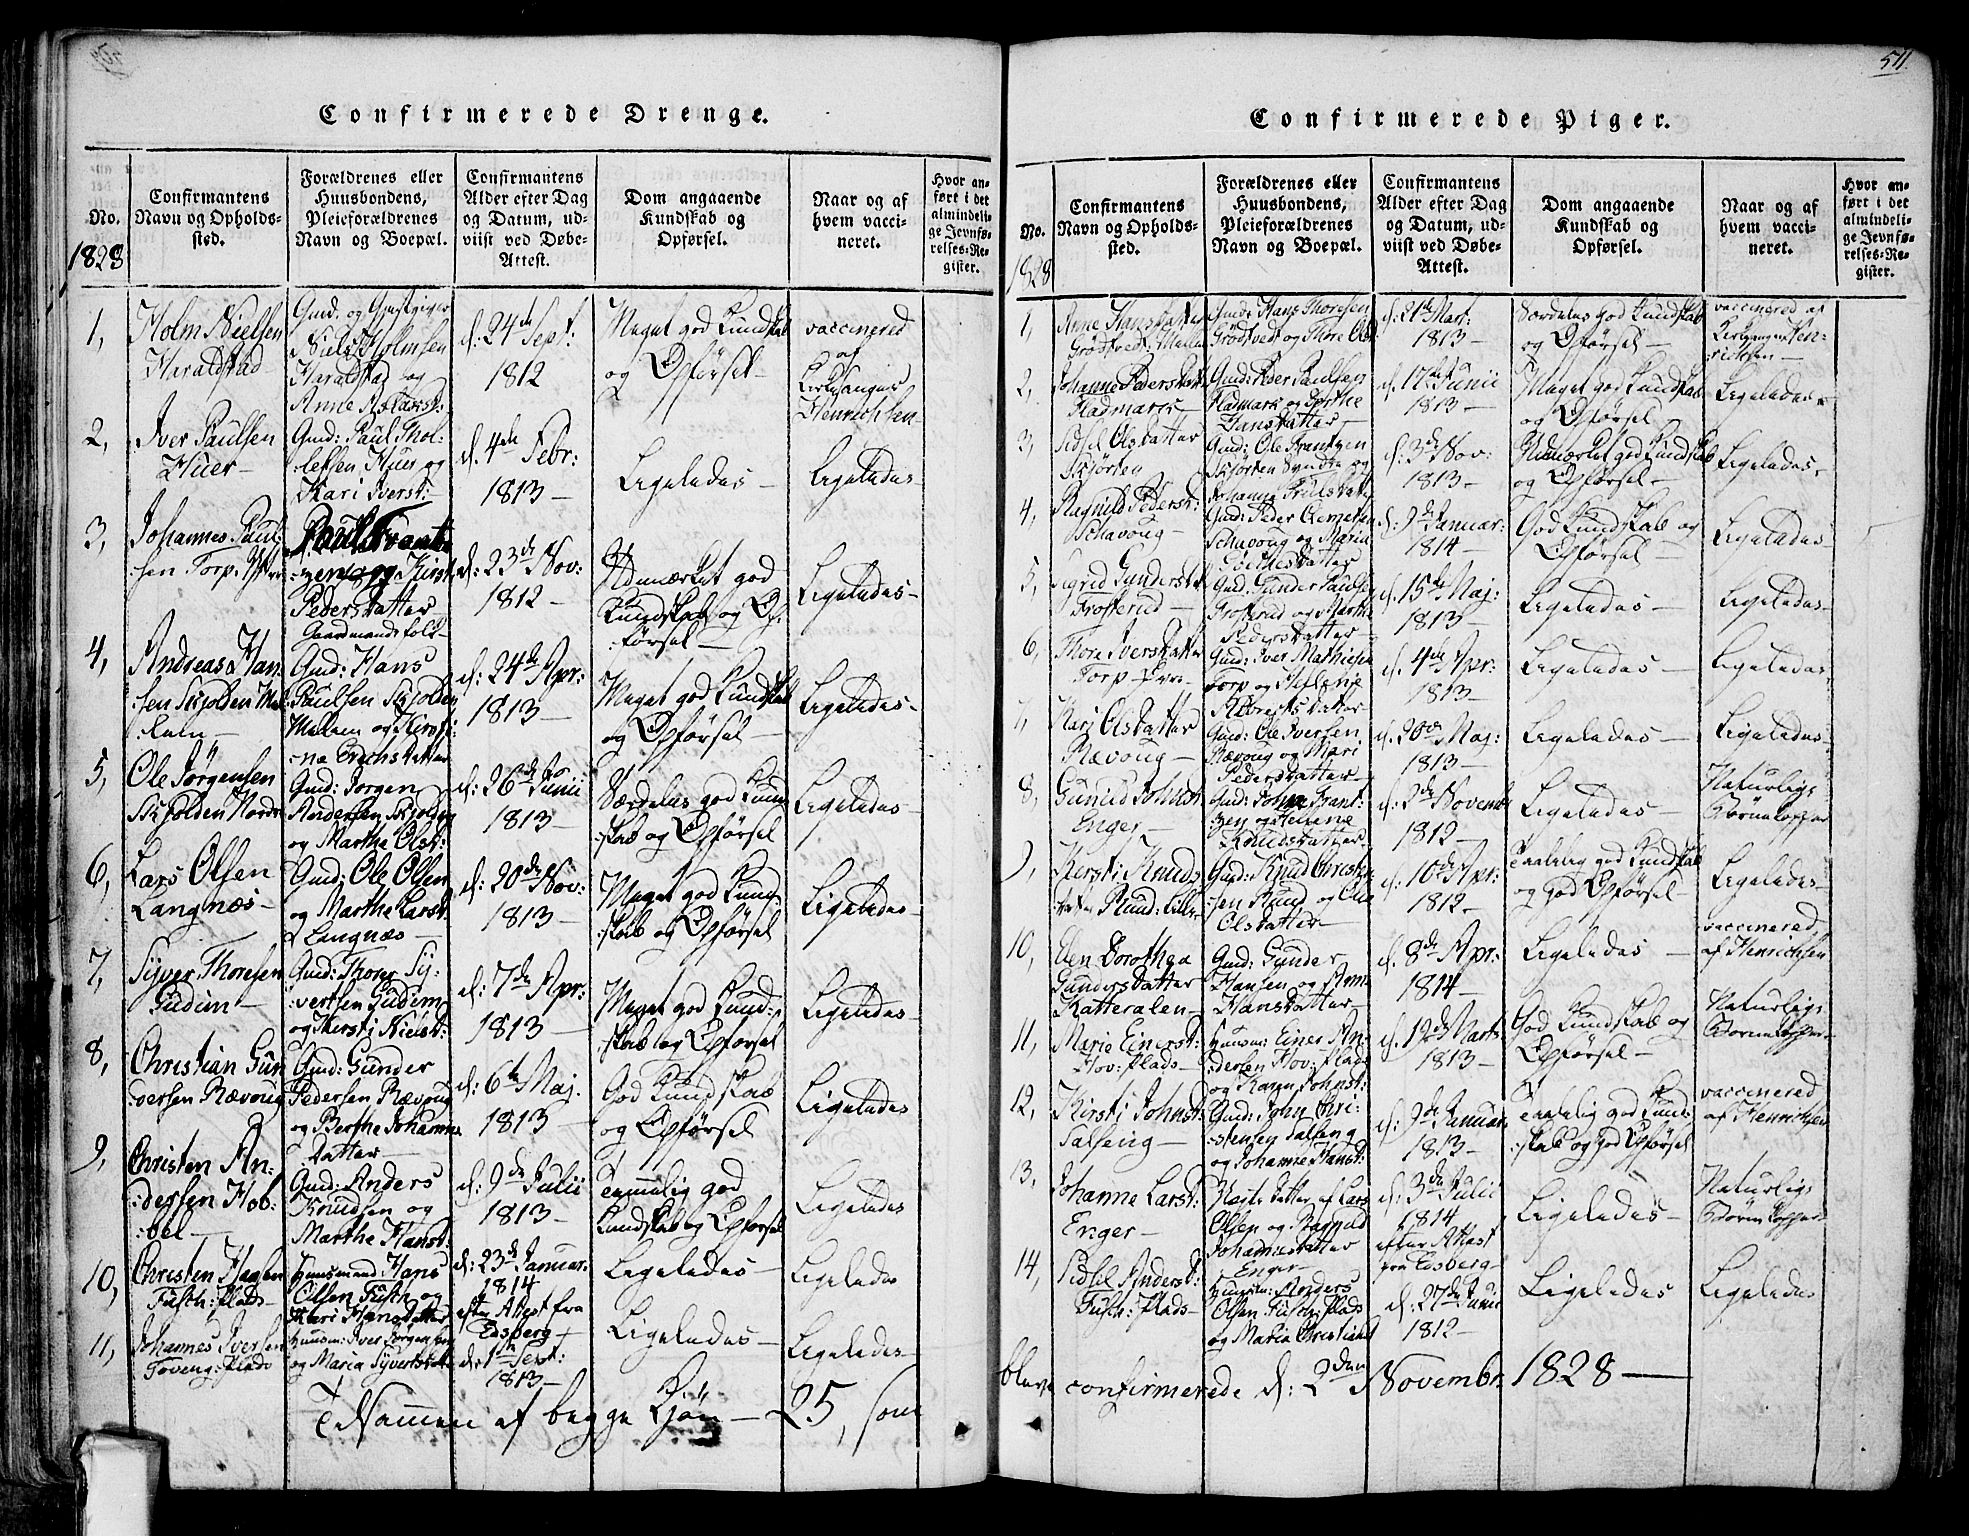 511.
Confirmerede Drenge.
No.
1828
Confirmantens
Navn og Opholds-
sted.
Forældrenes eller
Huusbondens,
Pleieforældrenes
Navn og Boepæl.
Confirmantens
Alder efter Dag
og Datum, ud-
viist ved Døbe-
Attest.
Dom angaaende
Kundskab og
Opførsel.
Naar og af
hvem vacci-
neret.
Hvor an-
ført i det
almindeli-
ge Jevnfø-
relses-Re-
gister.
1,
Holm Nielsen
Haraldstad
Gmd: og Gjestgiver
Niels Holmsen
Haraldstad og
Anne Aslakst:
d: 24de Sept:
1812
Meget god Kundskab
og Opførsel
vaccinered
af
Kirkesanger
Henrichsen
2,
Iver Paulsen
Huer
Gmd: Paul Thol-
lefsen Huer og
Kari Iverst:
d. 4de Febr:
1813
Ligeledes
Ligeledes
3,
Johannes Paul:
sen Torp
Paul Frant
zen og Kirst
Pedersdatter
Gaardmandsfolk
d: 23de Nov:
1812
Udmærket god
Kundskab og Op-
førsel
Ligeledes
4,
Andreas Han
sen Skjolden Mel
lem
Gmd: Hans
Paulsen Skjolden
Mellem og Kirsti
na Erichsdatter
d: 24de Apr:
1813
Meget god Kundskab
og Opførsel
Ligeledes
5,
Ole Jørgensen
Skjolden Nordre
Gmd: Jørgen
Andersen Skjolden
og Marthe Olst:
d: 26de Junii
1813
Særdeles god Kund
skab og Opførsel
Ligeledes
6,
Lars Olsen
Langnæs
Gmd: Ole Olsen
og Marthe Larst:
Langnæs
d: 20de Nov:
1813
Meget god Kund
skab og Opførsel
Ligeledes
7,
Syver Thoresen
Gudim
Gmd: Thorer Sy:
versen Gudim
og Kersti Nielst:
d: 7de Apr:
1813
Meget god Kund:
skab og Opførsel
Ligeledes
8,
Christian Gun
dersen Rævoug
Gmd: Gunder
Pedersen Rævoug
og Berthe Johanne
datter
d: 6te Maj.
1813
God Kundskab
og Opførsel
Ligeledes
9,
Christen An:
dersen Hob:
bel
Gmd: Anders
Knudsen og
Marthe Hanst:
d: 9de Julii
1813
Temmelig god
Kundskab og Opførsel
Ligeledes
10,
Christen Hansen
Fusch: plads
Huusmand Hans
Olsen Fusch og
Kari Hansdatter
d: 23de Januar:
1814
efter Attest fra
Edsberg
Ligeledes
Ligeledes
11,
Johannes Iversen
Toveng: plads
Huusm: Iver Jørgensen
og Maria Syvertsdt
d: 1ste Sept:
1813
Ligeledes
Ligeledes
Tilsammen af begge Kjøn 25, som
Confirmerede Piger.
No.
1828
Confirmantens
Navn og Opholds-
sted.
Forældrenes eller
Huusbondens,
Pleieforældrenes
Navn og Boepæl.
Confirmantens
Alder efter Dag
og Datum, ud-
viist ved Døbe-
Attest.
Dom angaaende
Kundskab og
Opførsel.
Naar og af
hvem vacci-
neret.
Hvor an-
ført i det
almindeli-
ge Jevnfø-
relses-Re-
gister.
1,
Anne Hansdatter
Grödtvedt: Mellem
Gmd: Hans Thoresen
Grödtvedt og Thore Olsd
d: 21de Mart:
1813
Særdeles god Kundskab
og Opførsel
vaccinered af
Kirkesanger Hen:
richsen
2,
Johanne Pedersdatt
Fladmark
Gmd: Peder Paulsen
Fladmark og Berthe
Hansdatter
d. 17de Junii
1813
Meget god Kundskab
og Opførsel
Ligeledes
3,
Sidsel Olsdatter
Skjørten
Gmd: Ole Frantzen
Skjørten Syndre og
Johanne
d: 3de Nov:
1813
Udmærket god Kundskab
og Opførsel
Ligeledes
4,
Ragnild Pederst:
Schavoug
Gmd: Peder Clemetsen
Schavoug og Maria
d. 9de Januar:
1814
God Kundskab og
Opførsel
Ligeledes
5,
Sigrid Gundersdat
Frosterud
Gmd: Gunder Paulsen
Frosterud og Marthe
Pedersdatter
d: 15de Maj:
1813
Ligeledes
Ligeledes
6,
Thore Iversdatter
Torp
Gmd: Iver Mathiesen
Torp og Helene
Albrectsdatter
d: 4de Apr:
1813
Ligeledes
Ligeledes
7,
Kari Olsdatter
Rævoug
Gmd: Ole Iversen
Rævoug og Mari
Pedersdatter
d. 20de Maj:
1813
Ligeledes
Ligeledes
8,
Gunild Johnst:
Enger
Gmd: John Frant:
zen og Helene
Knudsdatter
d: 2de Novembr
1812
Ligeledes
Naturlige
Børnekopper
9,
Kersti Knuds
datter Ruud: Lille
Gmd: Knud Christen
sen Ruud og
Olsdatter
d: 10de Apr:
1812
Taalelig god Kundskab
og god Opførsel
Ligeledes
10,
Elen Dorothea
Gundersdatter
Katteralen
Gmd: Gunder
Hansen og Anne
Hansdatter
d. 8de Apr:
1814
Ligeledes
vaccinered
af Henrichsen
11,
Marie Einerst:
Hov: plads
Huusm: Einer An
dersen Hov: plads
og Karen Johnst:
d. 19de Marts
1813
God Kundskab og
Opførsel
Naturlige
Børnekopper
12,
Kirsti Johnst:
Salfeng
Gmd: John Chri:
stensen Salfeng
og Johanne Hanst:
d: 9de Januar:
1813
Taalelig god Kund
skab og god Opførsel
vaccinered
af Henrichsen
13,
Johanne Larst:
Enger
Datter af Lars
Olsen og Ragnild
Johannesdatter
Enger
d: 3de Julii
1814
efter Attest
fra Edsberg
Ligeledes
Naturlige
Børnekopper
14,
Sidsel Anderst:
Fusch: plads
Huusm: Anders
Olsen Fusch: plads
og Maria Christiansd
d: 27de Junii
1812
Ligeledes
Ligeledes
bleve confirmerede d: 2den Novembr: 1828